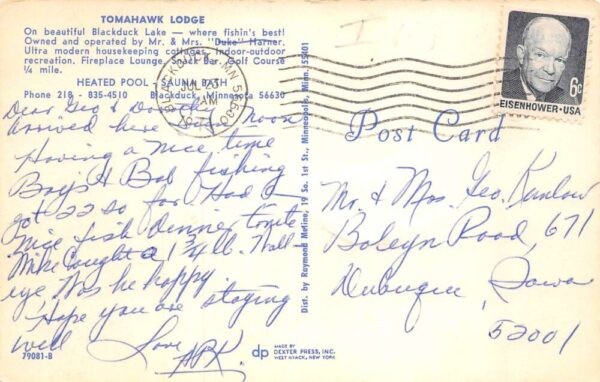 TOMAHAWK LODGE
On beautiful Blackduck Lake — where fishin's best!
Owned and operated by Mr. & Mrs. "Duke" Harner.
Ultra modern housekeeping cottages. Indoor-outdoor
recreation. Fireplace Lounge. Snack Bar. Golf Course
¼ mile.
HEATED POOL - SAUNA BATH
Phone 218 - 835-4510 Blackduck, Minnesota 56630
Dear Geo &
arrived here noon
Having a nice time
Boys & Bob fishing
got 22 so far Had a
nice fish dinner tonite
Mike caught a 1 3/4 lb. Wall-
eye Was he happy.
Hope you are staying
well Love
79081-B
Dist. by Raymond Metine, 19 So. 1st St., Minneapolis, Minn. 55401
dp MADE BY
DEXTER PRESS, INC.
WEST NYACK, NEW YORK
BLACKDUCK MN 566
JUL
AM
6c
EISENHOWER·USA
Post Card
Mr. & Mrs. Geo. Kanlow
Boleyn Road, 671
Dubuque, Iowa
52001